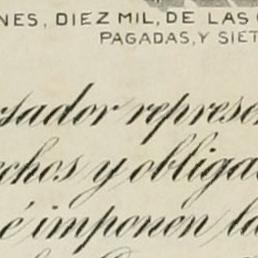 NES, DIEZ MIL, DE LAS
PAGADAS, Y SIET
sador represen
echos y obliga
é imponen la